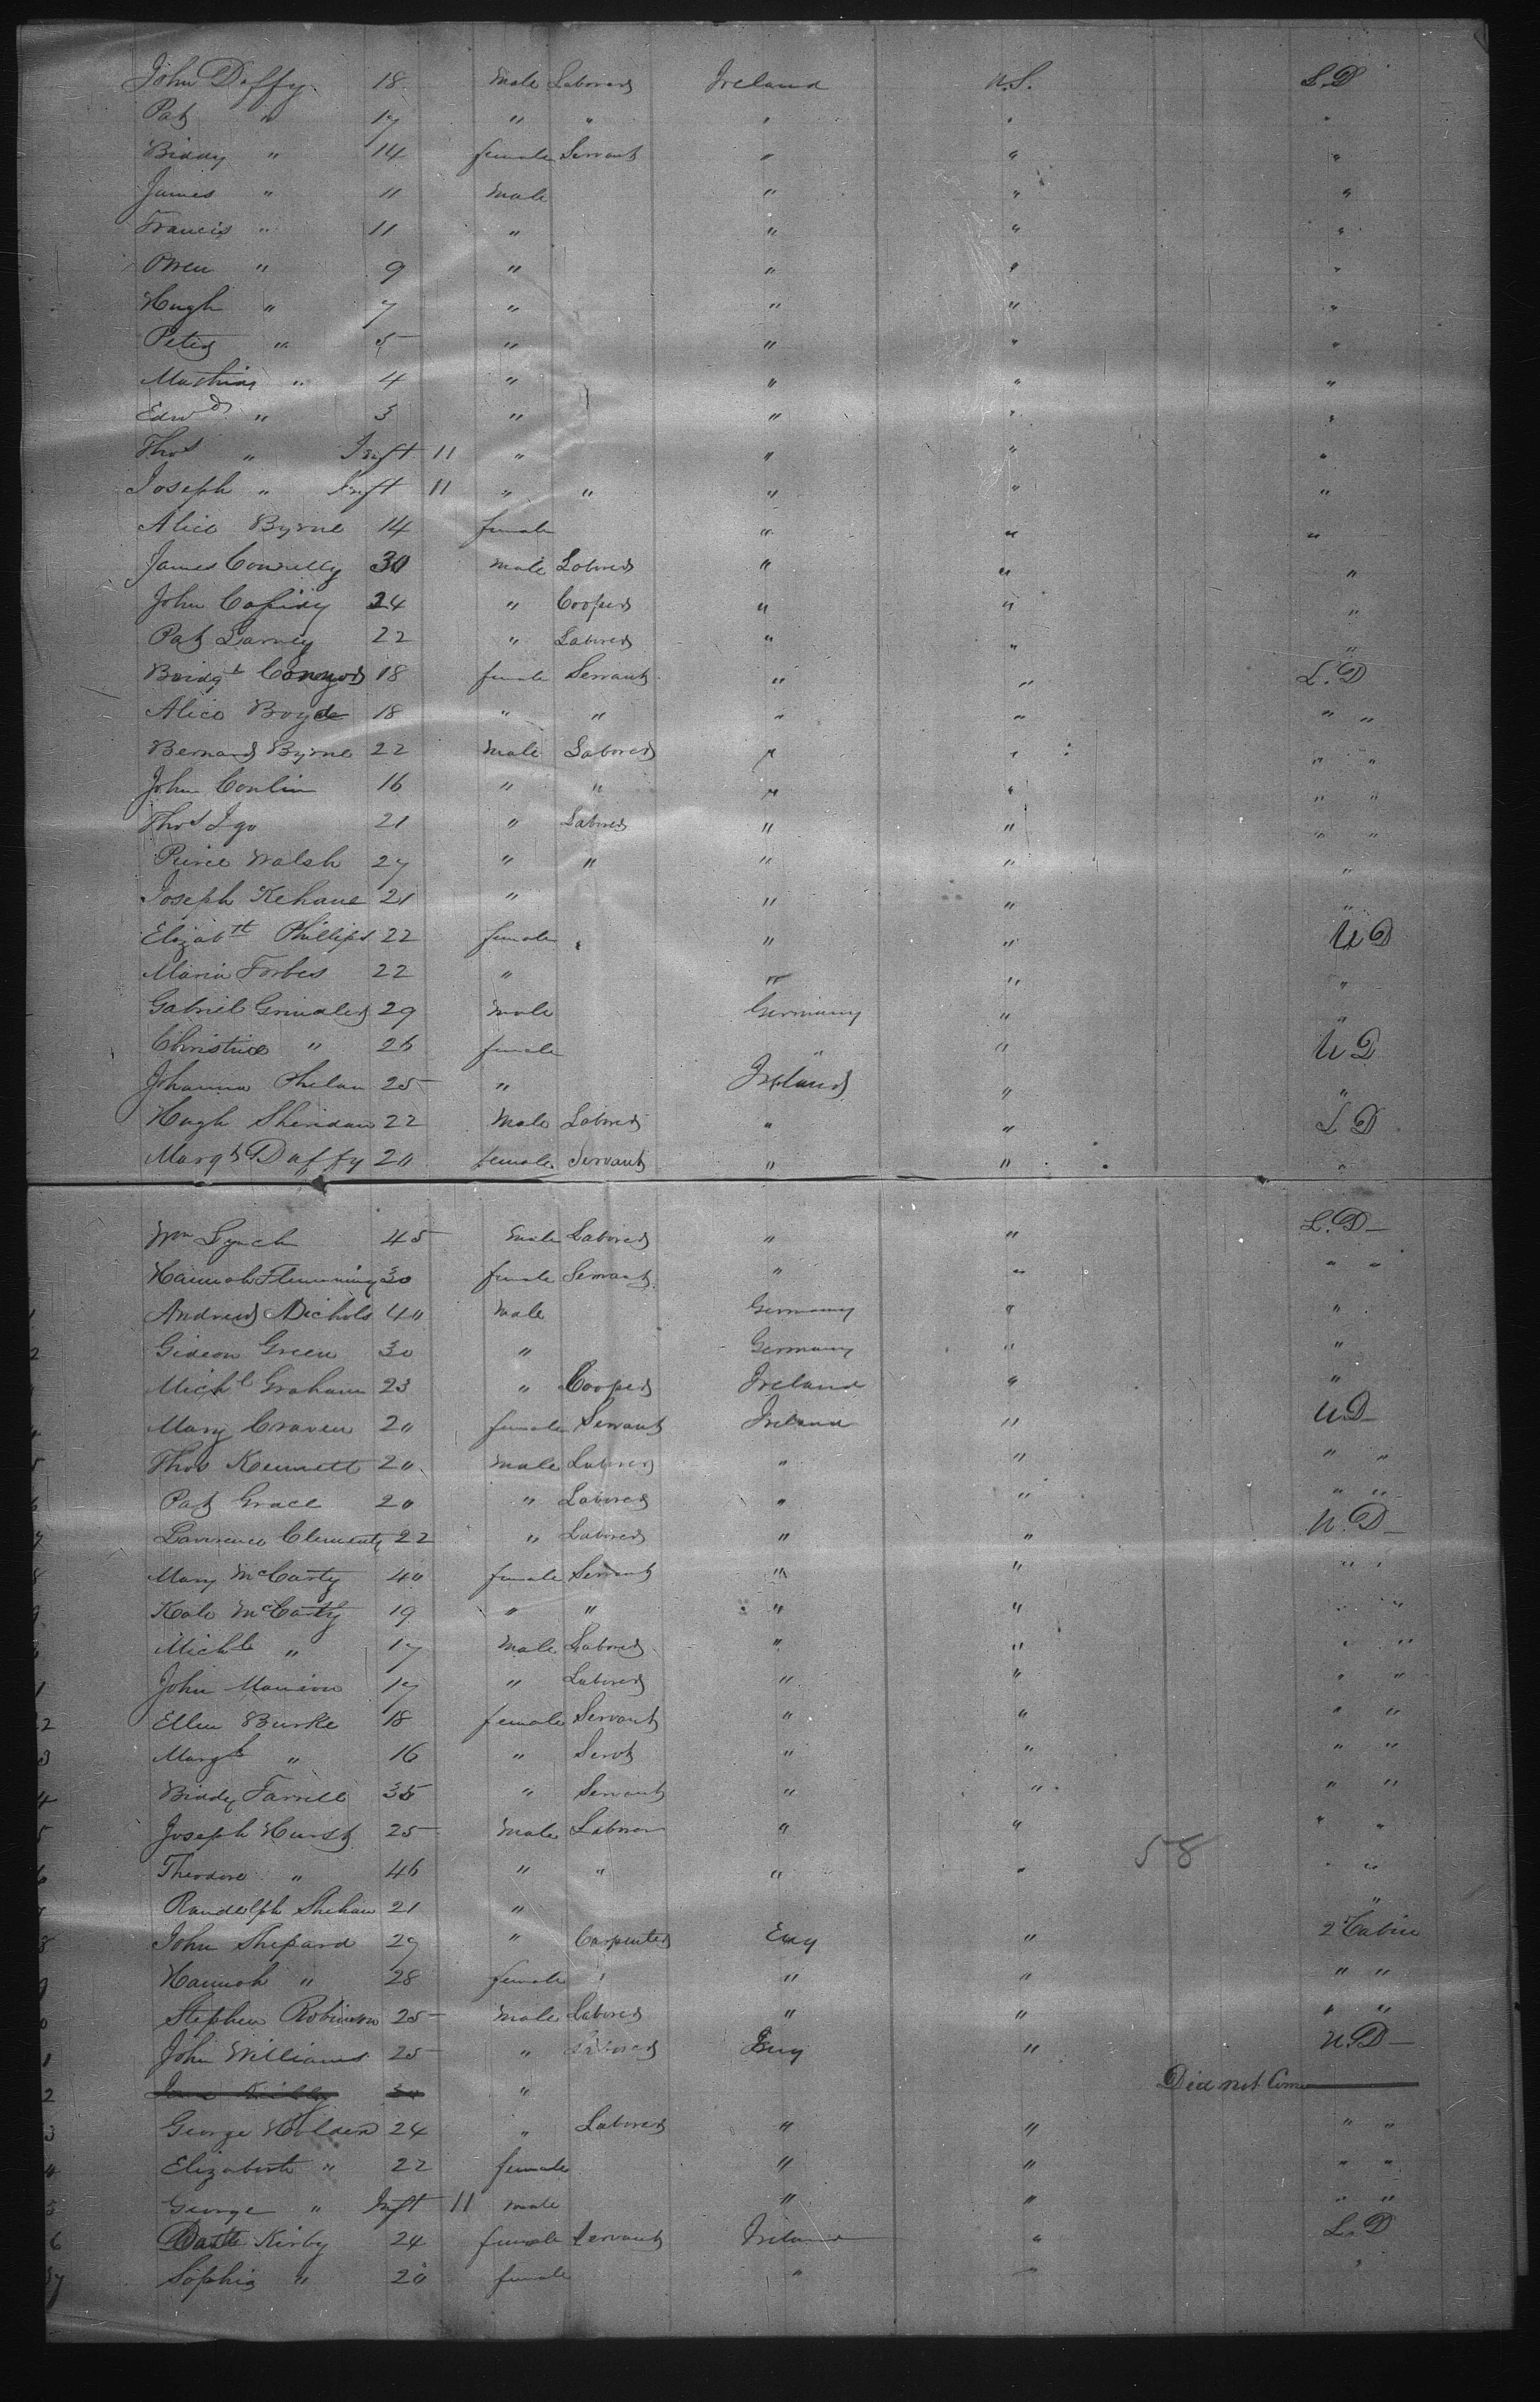 John Duffy 18 male Laborer Ireland U.S. L.D
Pat " 17 " " " " "
Biddy " 14 female Servant " " "
James " 11 male " " "
Francis " 11 " " " "
Owen " 9 " " " "
Hugh " 7 " " " "
Peter " 5 " " " "
Mathias " 4 " " " "
Edwd " 3 " " " "
Thos " Inft 11 " " " "
Joseph " Inft 11 " " " " "
Alice Byrne 14 female " " "
James Connelly 30 male Laborer " " "
John Cassidy 24 " Cooper " " "
Pat Larney 22 " Laborer " " "
Bridgt Connor 18 female Servant " " L.D
Alice Boyle 18 " " " " " "
Bernard Byrne 22 male Laborer " " " "
John Conlin 16 " " " " " "
Thos Igo 21 " Laborer " " " "
Pierce Walsh 27 " " " " "
Joseph Kehane 21 " " " "
Elizabth Phillips 22 female " " U D
Maria Forbes 22 " " " "
Gabriel Grindler 29 male Germany " "
Christine " 26 female " " U D
Johanna Phelan 25 " Ireland " "
Hugh Sheridan 22 male Laborer " " L D
Margt Duffy 20 female Servant " " "
Wm Lynch 45 male Laborer " " L.D
Hannah Flemming 30 female Servant " " " "
Andrew Nichols 40 male Germany " "
2 Gideon Green 30 " Germany " "
Michl Graham 23 " Cooper Ireland " "
Mary Craven 20 female Servant Ireland " U D
5 Thos Kennett 20 male Laborer " " " "
6 Pat Grace 20 " Laborer " " " "
7 Lawrence Clements 22 " Laborer " " U.D
8 Mary McCarty 40 female Servant " " " "
9 Kate McCarty 19 " " " " " "
Michl " 17 male Laborer " " " "
1 John Manion 17 " Laborer " " " "
2 Ellen Burke 18 female Servant " " " "
3 Margt " 16 " Servt " " " "
4 Biddy Farrell 35 " Servant " " " "
5 Joseph Hurst 25 male Laborer " " " "
6 Theodore " 46 " " " " 58 " "
Randolph Shehan 21 " "
8 John Shepard 29 " Carpenter Eng " 2 Cabin
9 Hannah " 28 female " " " " "
0 Stephen Robinson 25 male Laborer " " " "
1 John Williams 25 " Laborer Eng " U.D
2 " Did not Come
3 George Holden 24 " Laborer " " " "
4 Elizabeth " 22 female " " " "
5 George " Inft 11 male " " " "
6 Kirby 24 female Servant Ireland " L.D
37 Sophia " 20 female " " "